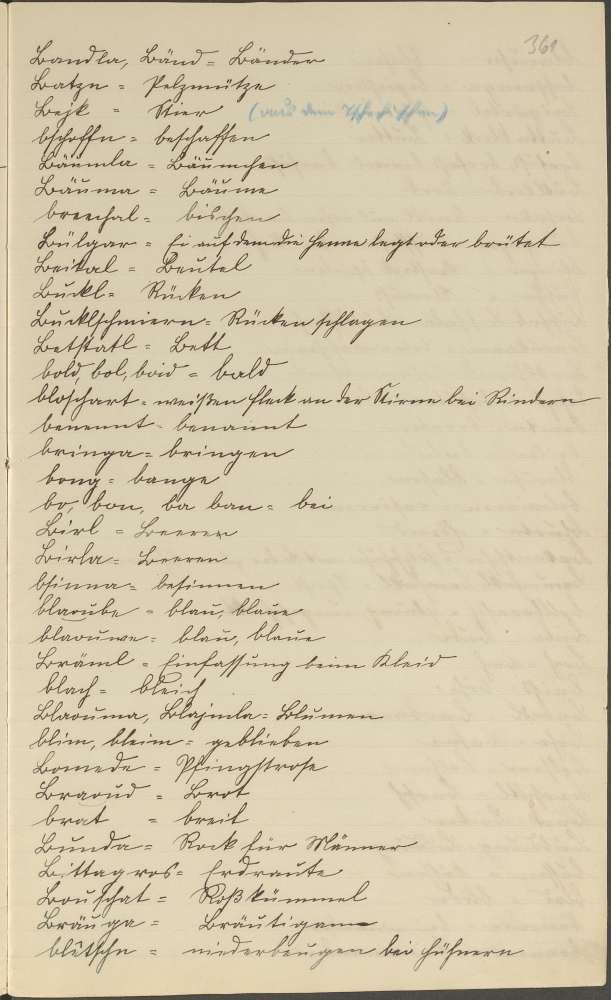 361
Bandla, Bänd = Bänder
Batzn = Pelzmütze
Bejk = Stier (aus dem Tschechischen)
bschoffn = beschaffen
Bäumla = Bäumchen
Bäuma = Bäume
breechal = bischen
Bülgar = Ei auf dem die Henne legt oder brütet
Beikal = Beutel
Buckl = Rücken
Bucklschmiern = Rücken schlagen
Betstatl = Bett
bold, bol, boid = bald
bloschart = weißen Fleck an der Stirne bei Rindern
benennt = benannt
bringa = bringen
bong = bange
bo, bon, ba ban = bei
Birl = Beeren
Birla = Beeren
bsinna = besinnen
blaoube = blau, blaue
blaouwe = blau, blaue
Bräml = Einfassung beim Kleid
blach = bleich
Blaouma, Blajmla = Blumen
blim, bleim = geblieben
Bomede = Pfingstrose
Braoud = Brot
brat = breit
Bunda = Rock für Männer
Bittagros = Erdraute
Bouschat = Roßkümmel
Bräuga = Bräutigam
blêtschn = niederbeugen bei Hühnern